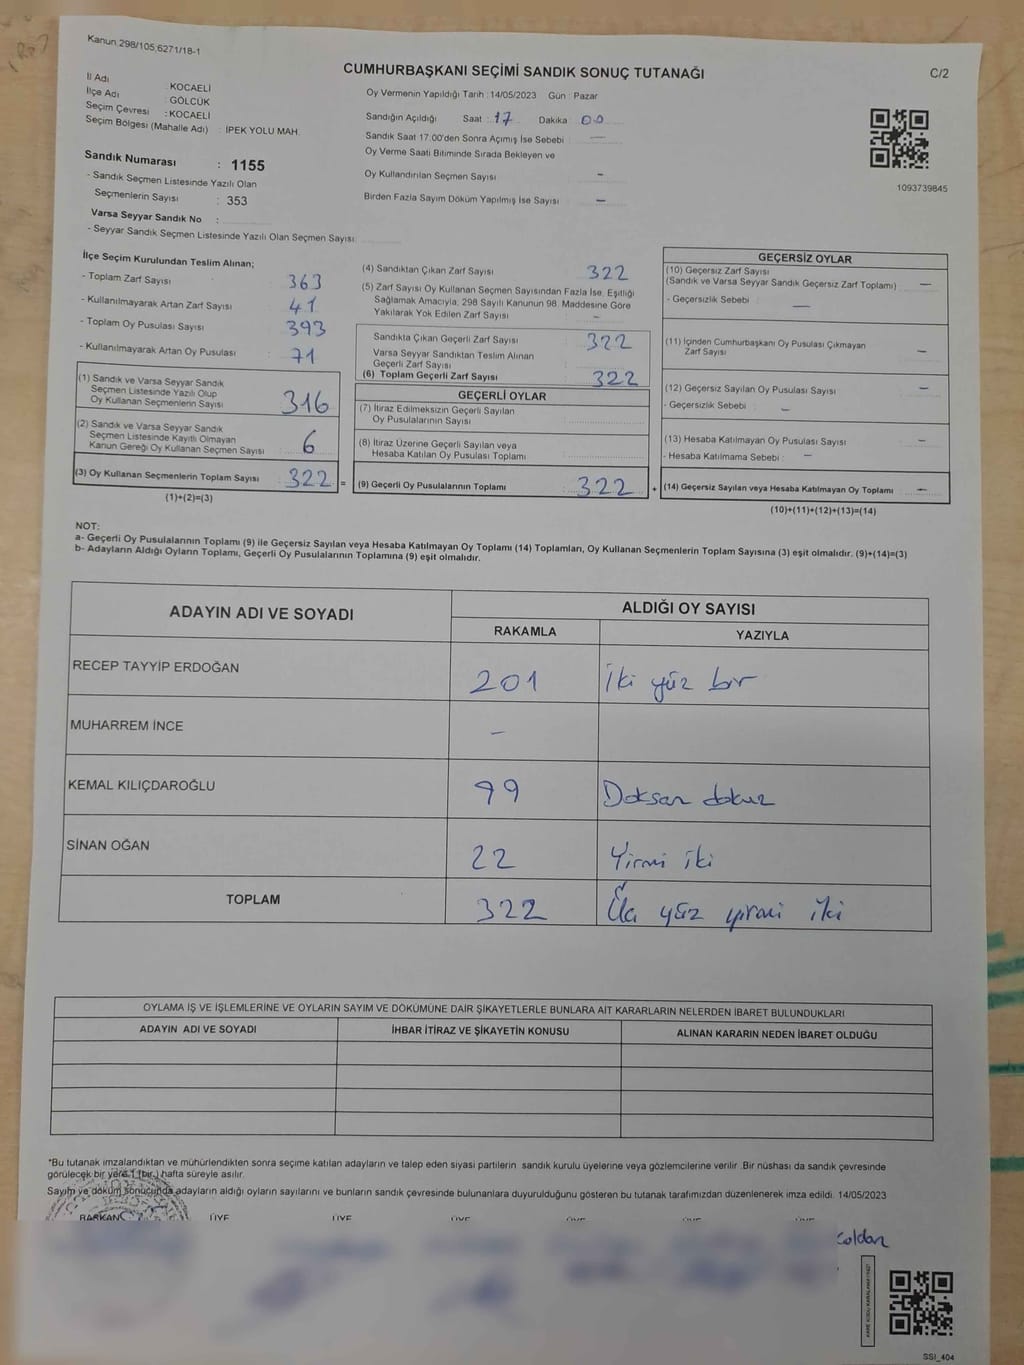 Kanun 298/105,6271/18-1
CUMHURBAŞKANI SEÇİMİ SANDIK SONUÇ TUTANAĞI
C/2
İl Adı : KOCAELİ
İlçe Adı : GÖLCÜK
Seçim Çevresi : KOCAELİ
Seçim Bölgesi (Mahalle Adı) : İPEK YOLU MAH.
Sandık Numarası : 1155
- Sandık Seçmen Listesinde Yazılı Olan
Seçmenlerin Sayısı : 353
Varsa Seyyar Sandık No :
- Seyyar Sandık Seçmen Listesinde Yazılı Olan Seçmen Sayısı
Oy Vermenin Yapıldığı Tarih : 14/05/2023 Gün : Pazar
Sandığın Açıldığı Saat : 17 Dakika : 00
Sandık Saat 17:00'den Sonra Açımış İse Sebebi : —
Oy Verme Saati Bitiminde Sırada Bekleyen ve
Oy Kullandırılan Seçmen Sayısı –
Birden Fazla Sayım Döküm Yapılmış İse Sayısı —
1093739845
İlçe Seçim Kurulundan Teslim Alınan;
- Toplam Zarf Sayısı 363
- Kullanılmayarak Artan Zarf Sayısı 41
- Toplam Oy Pusulası Sayısı 393
- Kullanılmayarak Artan Oy Pusulası 71
(1) Sandık ve Varsa Seyyar Sandık
Seçmen Listesinde Yazılı Olup
Oy Kullanan Seçmenlerin Sayısı 316
(2) Sandık ve Varsa Seyyar Sandık
Seçmen Listesinde Kayıtlı Olmayan
Kanun Gereği Oy Kullanan Seçmen Sayısı 6
(3) Oy Kullanan Seçmenlerin Toplam Sayısı 322 =
(1)+(2)=(3)
(4) Sandıktan Çıkan Zarf Sayısı 322
(5) Zarf Sayısı Oy Kullanan Seçmen Sayısından Fazla İse, Eşitliği
Sağlamak Amacıyla; 298 Sayılı Kanunun 98. Maddesine Göre
Yakılarak Yok Edilen Zarf Sayısı –
Sandıkta Çıkan Geçerli Zarf Sayısı 322
Varsa Seyyar Sandıktan Teslim Alınan
Geçerli Zarf Sayısı
(6) Toplam Geçerli Zarf Sayısı 322
GEÇERLİ OYLAR
(7) İtiraz Edilmeksizin Geçerli Sayılan
Oy Pusulalarının Sayısı
(8) İtiraz Üzerine Geçerli Sayılan veya
Hesaba Katılan Oy Pusulası Toplamı
(9) Geçerli Oy Pusulalarının Toplamı 322 +
GEÇERSİZ OYLAR
(10) Geçersiz Zarf Sayısı
(Sandık ve Varsa Seyyar Sandık Geçersiz Zarf Toplamı) —
- Geçersizlik Sebebi : —
(11) İçinden Cumhurbaşkanı Oy Pusulası Çıkmayan
Zarf Sayısı —
(12) Geçersiz Sayılan Oy Pusulası Sayısı —
- Geçersizlik Sebebi : –
(13) Hesaba Katılmayan Oy Pusulası Sayısı –
- Hesaba Katılmama Sebebi : –
(14) Geçersiz Sayılan veya Hesaba Katılmayan Oy Toplamı —
(10)+(11)+(12)+(13)=(14)
NOT:
a- Geçerli Oy Pusulalarının Toplamı (9) ile Geçersiz Sayılan veya Hesaba Katılmayan Oy Toplamı (14) Toplamları, Oy Kullanan Seçmenlerin Toplam Sayısına (3) eşit olmalıdır. (9)+(14)=(3)
b- Adayların Aldığı Oyların Toplamı, Geçerli Oy Pusulalarının Toplamına (9) eşit olmalıdır.
ADAYIN ADI VE SOYADI
ALDIĞI OY SAYISI
RAKAMLA YAZIYLA
RECEP TAYYİP ERDOĞAN 201 İki yüz bir
MUHARREM İNCE –
KEMAL KILIÇDAROĞLU 99 Doksan dokuz
SİNAN OĞAN 22 Yirmi iki
TOPLAM 322 Üç yüz yirmi iki
OYLAMA İŞ VE İŞLEMLERİNE VE OYLARIN SAYIM VE DÖKÜMÜNE DAİR ŞİKAYETLERLE BUNLARA AİT KARARLARIN NELERDEN İBARET BULUNDUKLARI
ADAYIN ADI VE SOYADI İHBAR İTİRAZ VE ŞİKAYETİN KONUSU ALINAN KARARIN NEDEN İBARET OLDUĞU
*Bu tutanak imzalandıktan ve mühürlendikten sonra seçime katılan adayların ve talep eden siyasi partilerin sandık kurulu üyelerine veya gözlemcilerine verilir. Bir nüshası da sandık çevresinde
görülecek bir yere 1 (bir) hafta süreyle asılır.
Sayım ve döküm sonucunda adayların aldığı oyların sayılarını ve bunların sandık çevresinde bulunanlara duyurulduğunu gösteren bu tutanak tarafımızdan düzenlenerek imza edildi. 14/05/2023
BAŞKAN ÜYE ÜYE ÜYE ÜYE ÜYE ÜYE
SSI_404